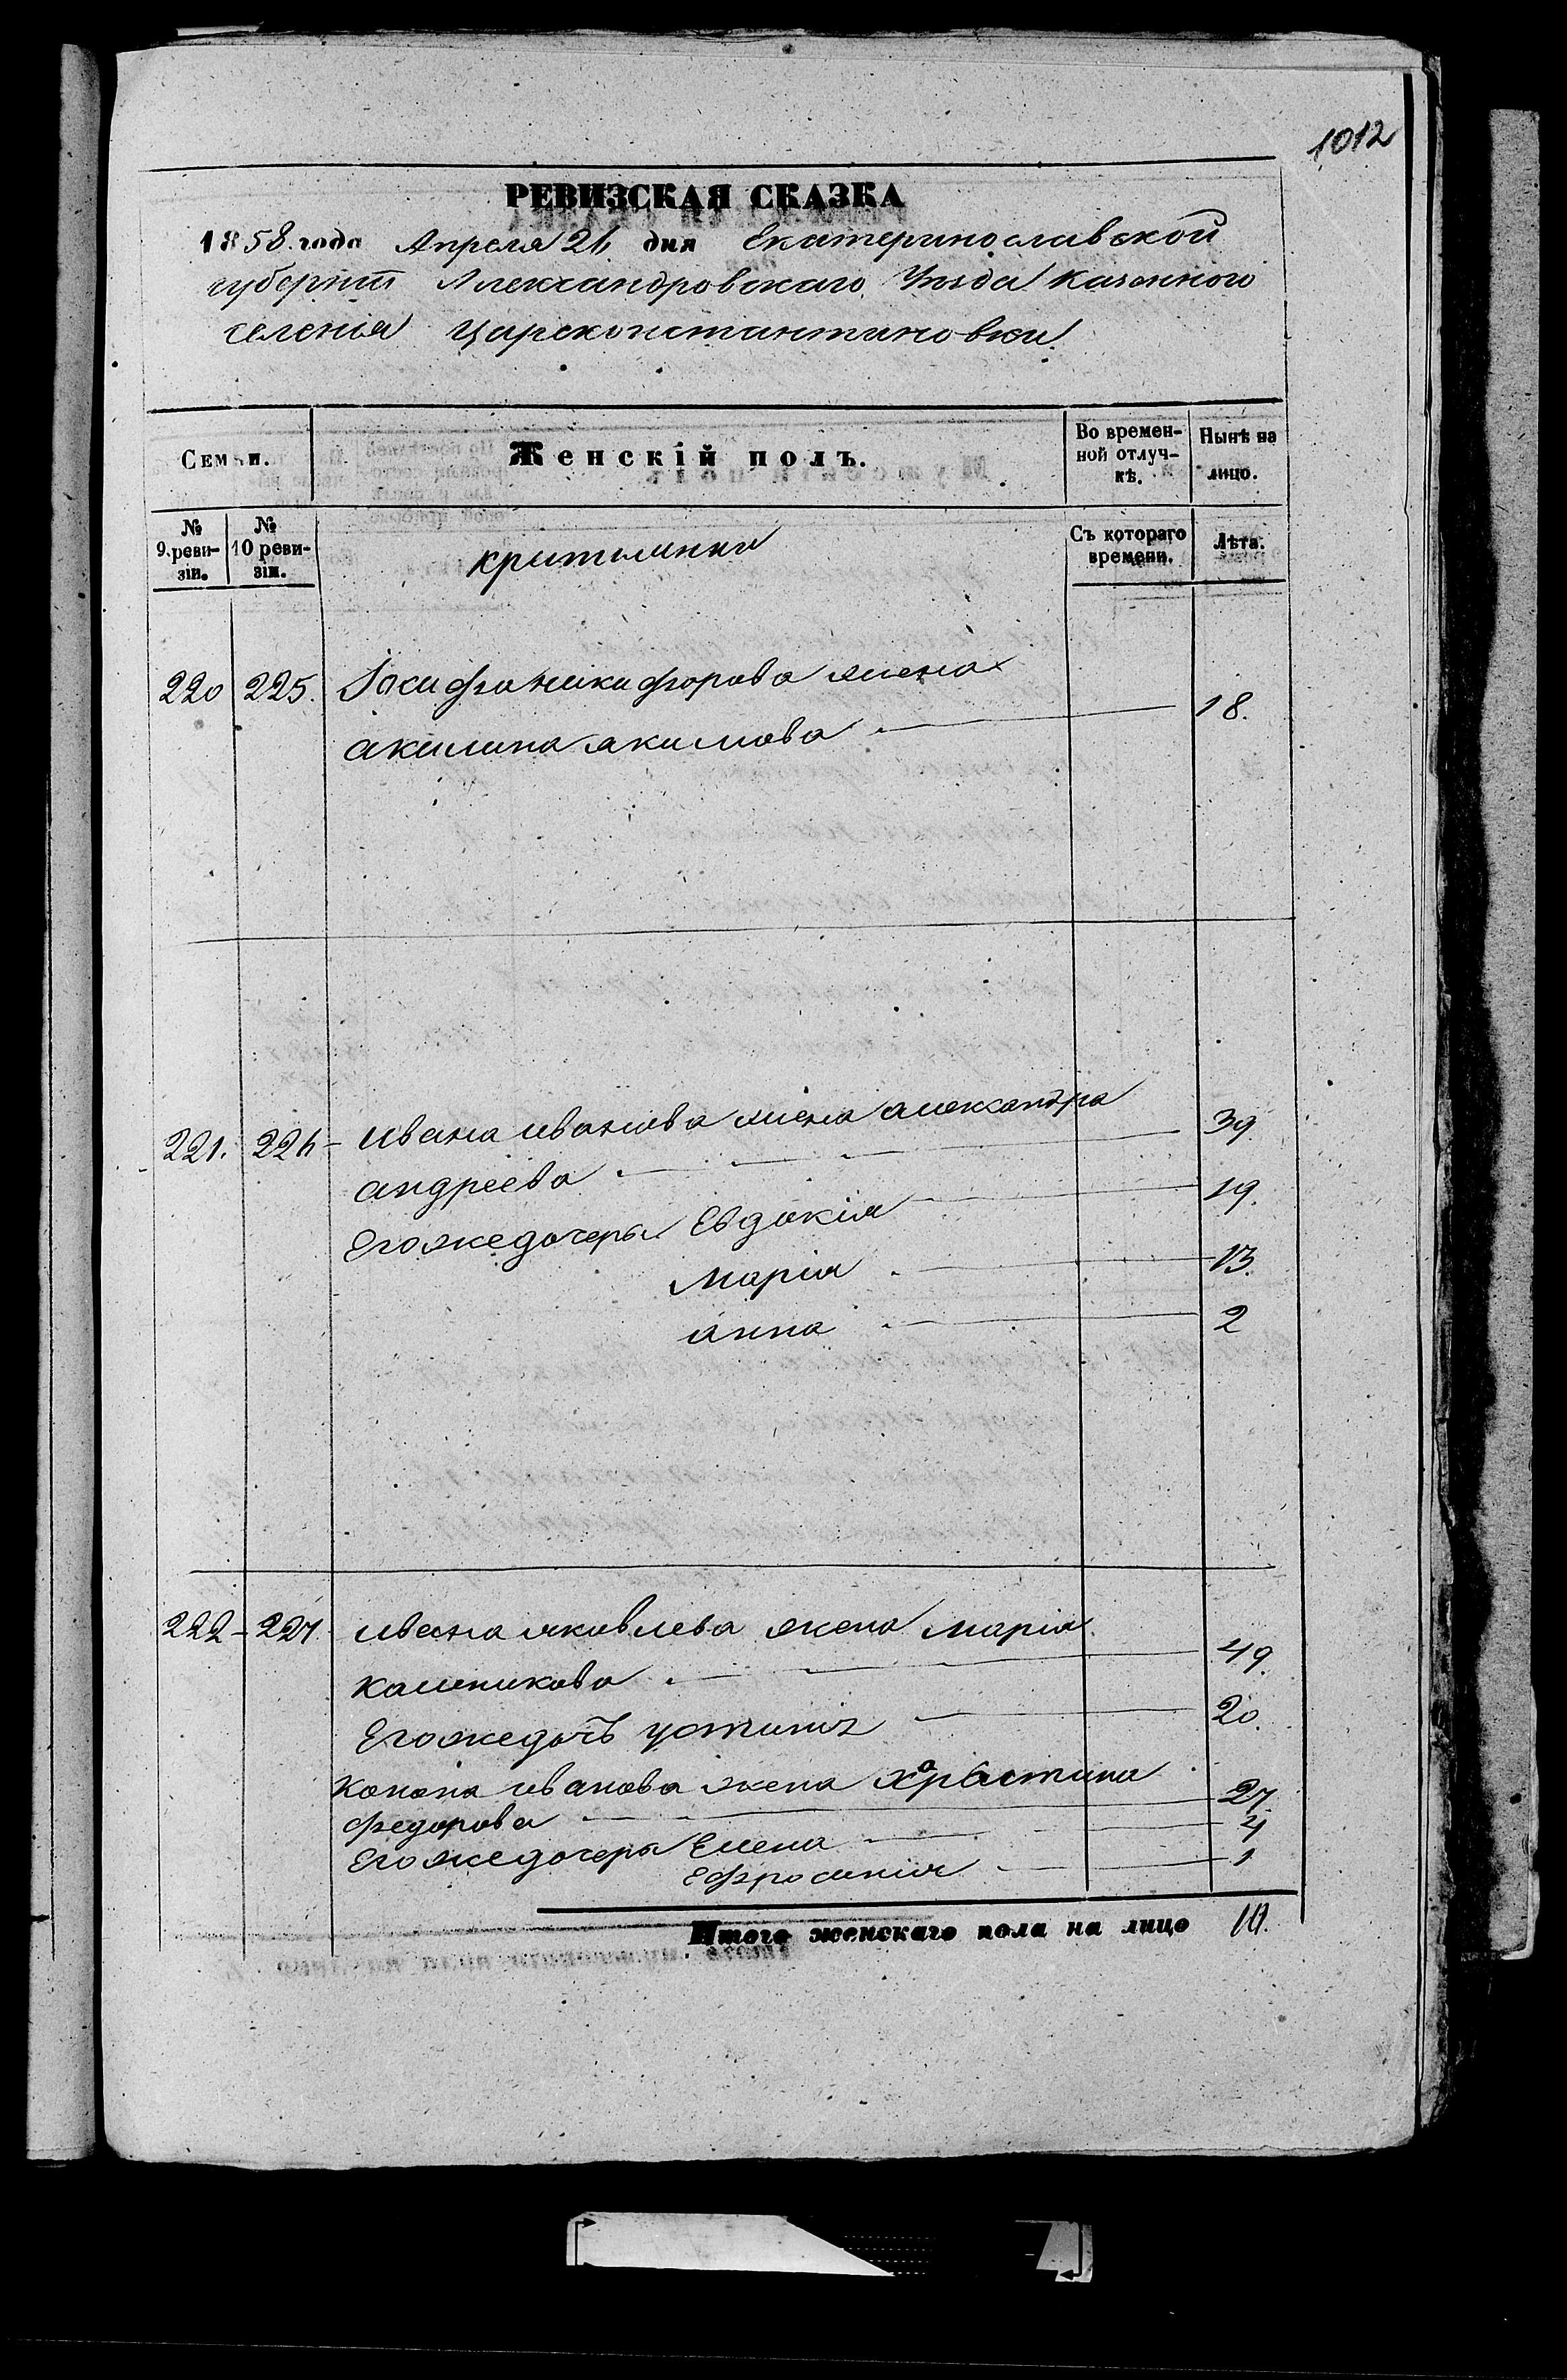 1012
РЕВИЗСКАЯ СКАЗКА
1858. года Апреля 26 дня Екатеринославской
губернии Александровскаго Уезда Казенного
селения Царсконстантиновки
Семьи.
Женскій полъ.
Во времен-
ной отлуч-
кѣ.
Нынѣ на
лицо.
№
9. реви-
зіи.
№
10 реви-
зіи.
Съ котораго
времени.
Лѣта.
220 225. Никифорова жена
акилина якимова 18.
221. 226 Ивана иванова жена александра
андреева 39
Его же дочери Евдокія 19.
Марія 13.
анна 2
222 227 Ивана яковлева жена марія
калникова 49.
Его же дочь устинія 20.
Конона иванова жена Храстина
федорова 27.
Его же дочери Елена 4
Ефросинія 1
Итого женскаго пола на лицо 10.